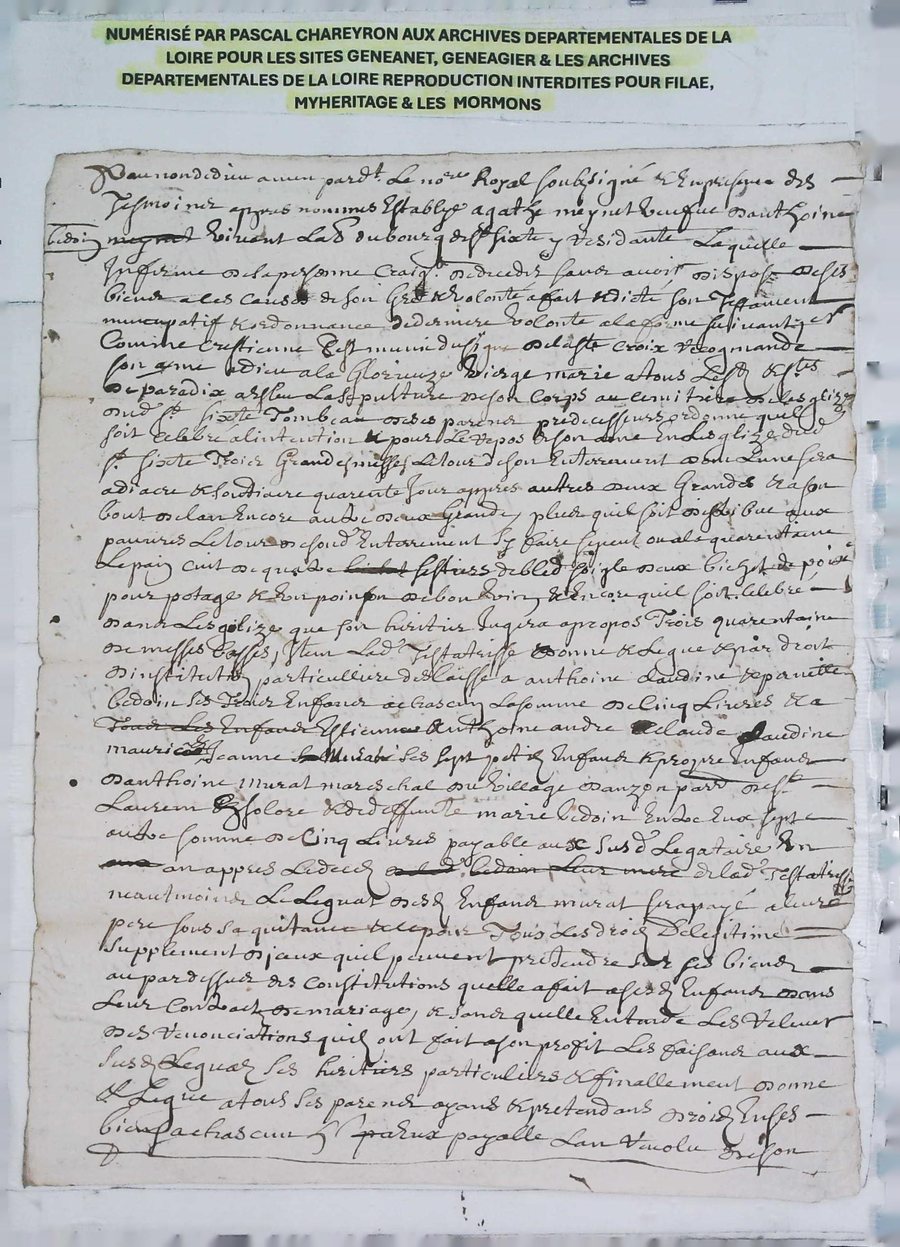 NUMÉRISÉ PAR PASCAL CHAREYRON AUX ARCHIVES DEPARTEMENTALES DE LA
LOIRE POUR LES SITES GENEANET, GENEAGIER & LES ARCHIVES
DEPARTEMENTALES DE LA LOIRE REPRODUCTION INTERDITES POUR FILAE,
MYHERITAGE & LES MORMONS
Au nom de dieu amen pard.t Le no.re Royal soubsigné & En presence des
Tesmoins appres nommes Establye agathe meynet veufve d'anthoine
bedoin meynet vivant Lab.r du bourg de s.t sixte y residante Laquelle
Infirme de sa personne craig.t de decedes sans avoir dispose de ses
biens a les causes de son Gré & volonté a fait & dicté son Testament
nuncupatif & ordonnance de derniere volonte a la forme suivante
Comme crestienne s'est munie du signe de la s.te croix recommande
son ame a dieu a la Glorieuze vierge marie a tous Les s.ts & s.tes
de paradix a esleu La sepulture de son corps au cemitiere de Leglize
dud. s.t sixte Tombeau de ses parens predecesseurs ordonne quil
soit celebre a lintention & pour Le repos de son ame En Leglize dud
s.t sixte Trois Grandes messes Le jour de son Enterrement dont Lune sera
a diacre & soudiacre quarente jour appres autres deux Grandes & a son
bout de lan Encore autre deux Grande, plus quil soit distribue aux
pauvres Le jour de sond. Enterrement Sy faire se peut ou a la quarentaine
Le pain cuit de quatre bichet sestiers de bled soigle deux bichet de poix
pour potage & un poinson de bon vin & Encore quil soit celebré
dans Leglize que son heritier Jugera a propos Trois quarentaine
de messes basses, Item Lad. Testatrisse donne & Legue & par droit
d'institution particulliere delaisse a anthoine claudine & pernette
bedoin ses Trois Enfans a chascun La somme de Cinq Livres & a
Tous Les Enfans Estienne Anthoine andre claude claudine
maurice & Jeanne Murat ses sept petis Enfans & propre enfans
d'anthoine murat mareschal du village d'anzon par. de s.t
Laurent sollore & de deffunte marie bedoin Entre Eux sept
autre somme de Cinq Livres payable aux susd. Legataire En
un an appres Le deces bedoin Leur mere de lad. Testatrisse
neantmoins Le Legat des. Enfans murat sera payé a leur
pere sous sa quitance & le pour Tous Les droits De legitime
supplement d'iceux quil peuvent pretendre sur ses biens
au par dessus des constitutions quelle a fait a ses. Enfans dans
Leur Contract de mariage, & sans quelle Entande Les Relever
des renonciations quil ont fait a son profit Les faisans aux
susd. Leguas ses heritiers particuliers & finallement donne
& Legue a tous ses parens ayans & pretendans droits En ses
biens a chascun payable Lan revolu de son